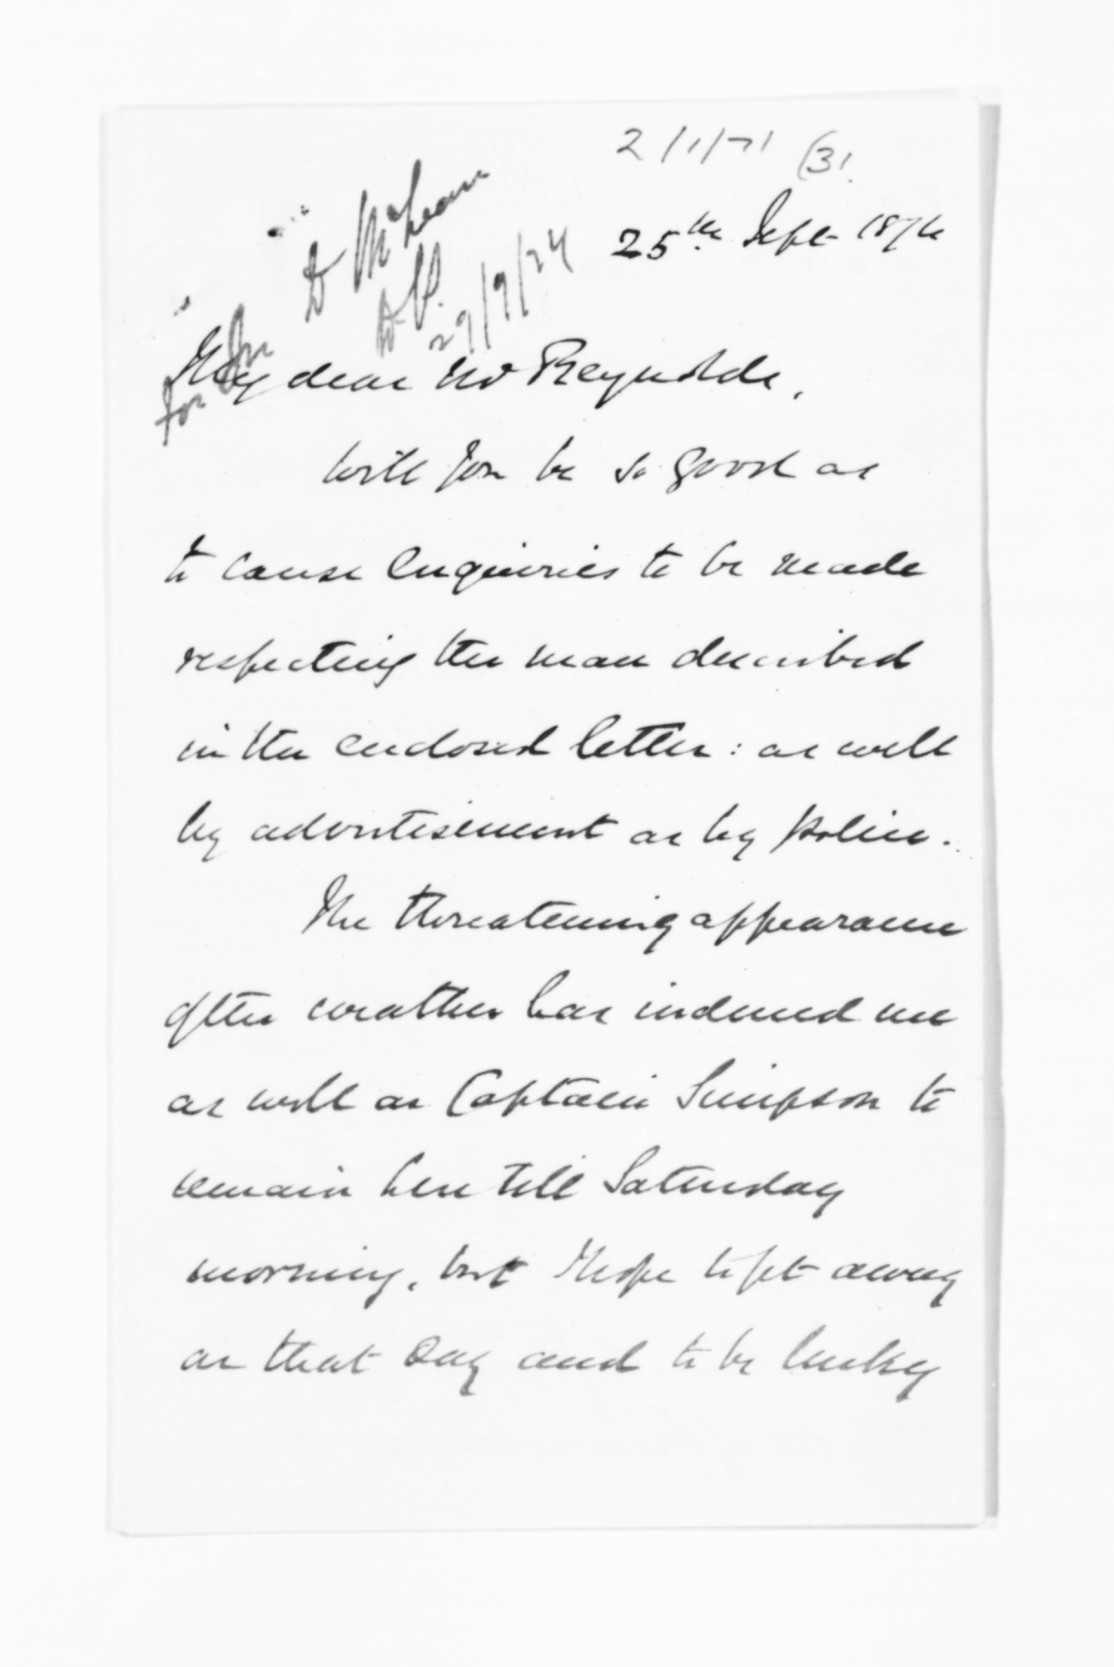 2/1/71 (31.
25th Sept 1874
For
D McLean
29/9/74
My dear Mr Reynolds,
Will you be so good as
to cause enquiries to be made
respecting the man described
in the enclosed letter: as well
by advertisement as by police.
The threatening appearance
of the weather has induced me
as well as Captain Simpson to
remain here till Saturday
morning, but I hope to get away
on that day and to be lucky